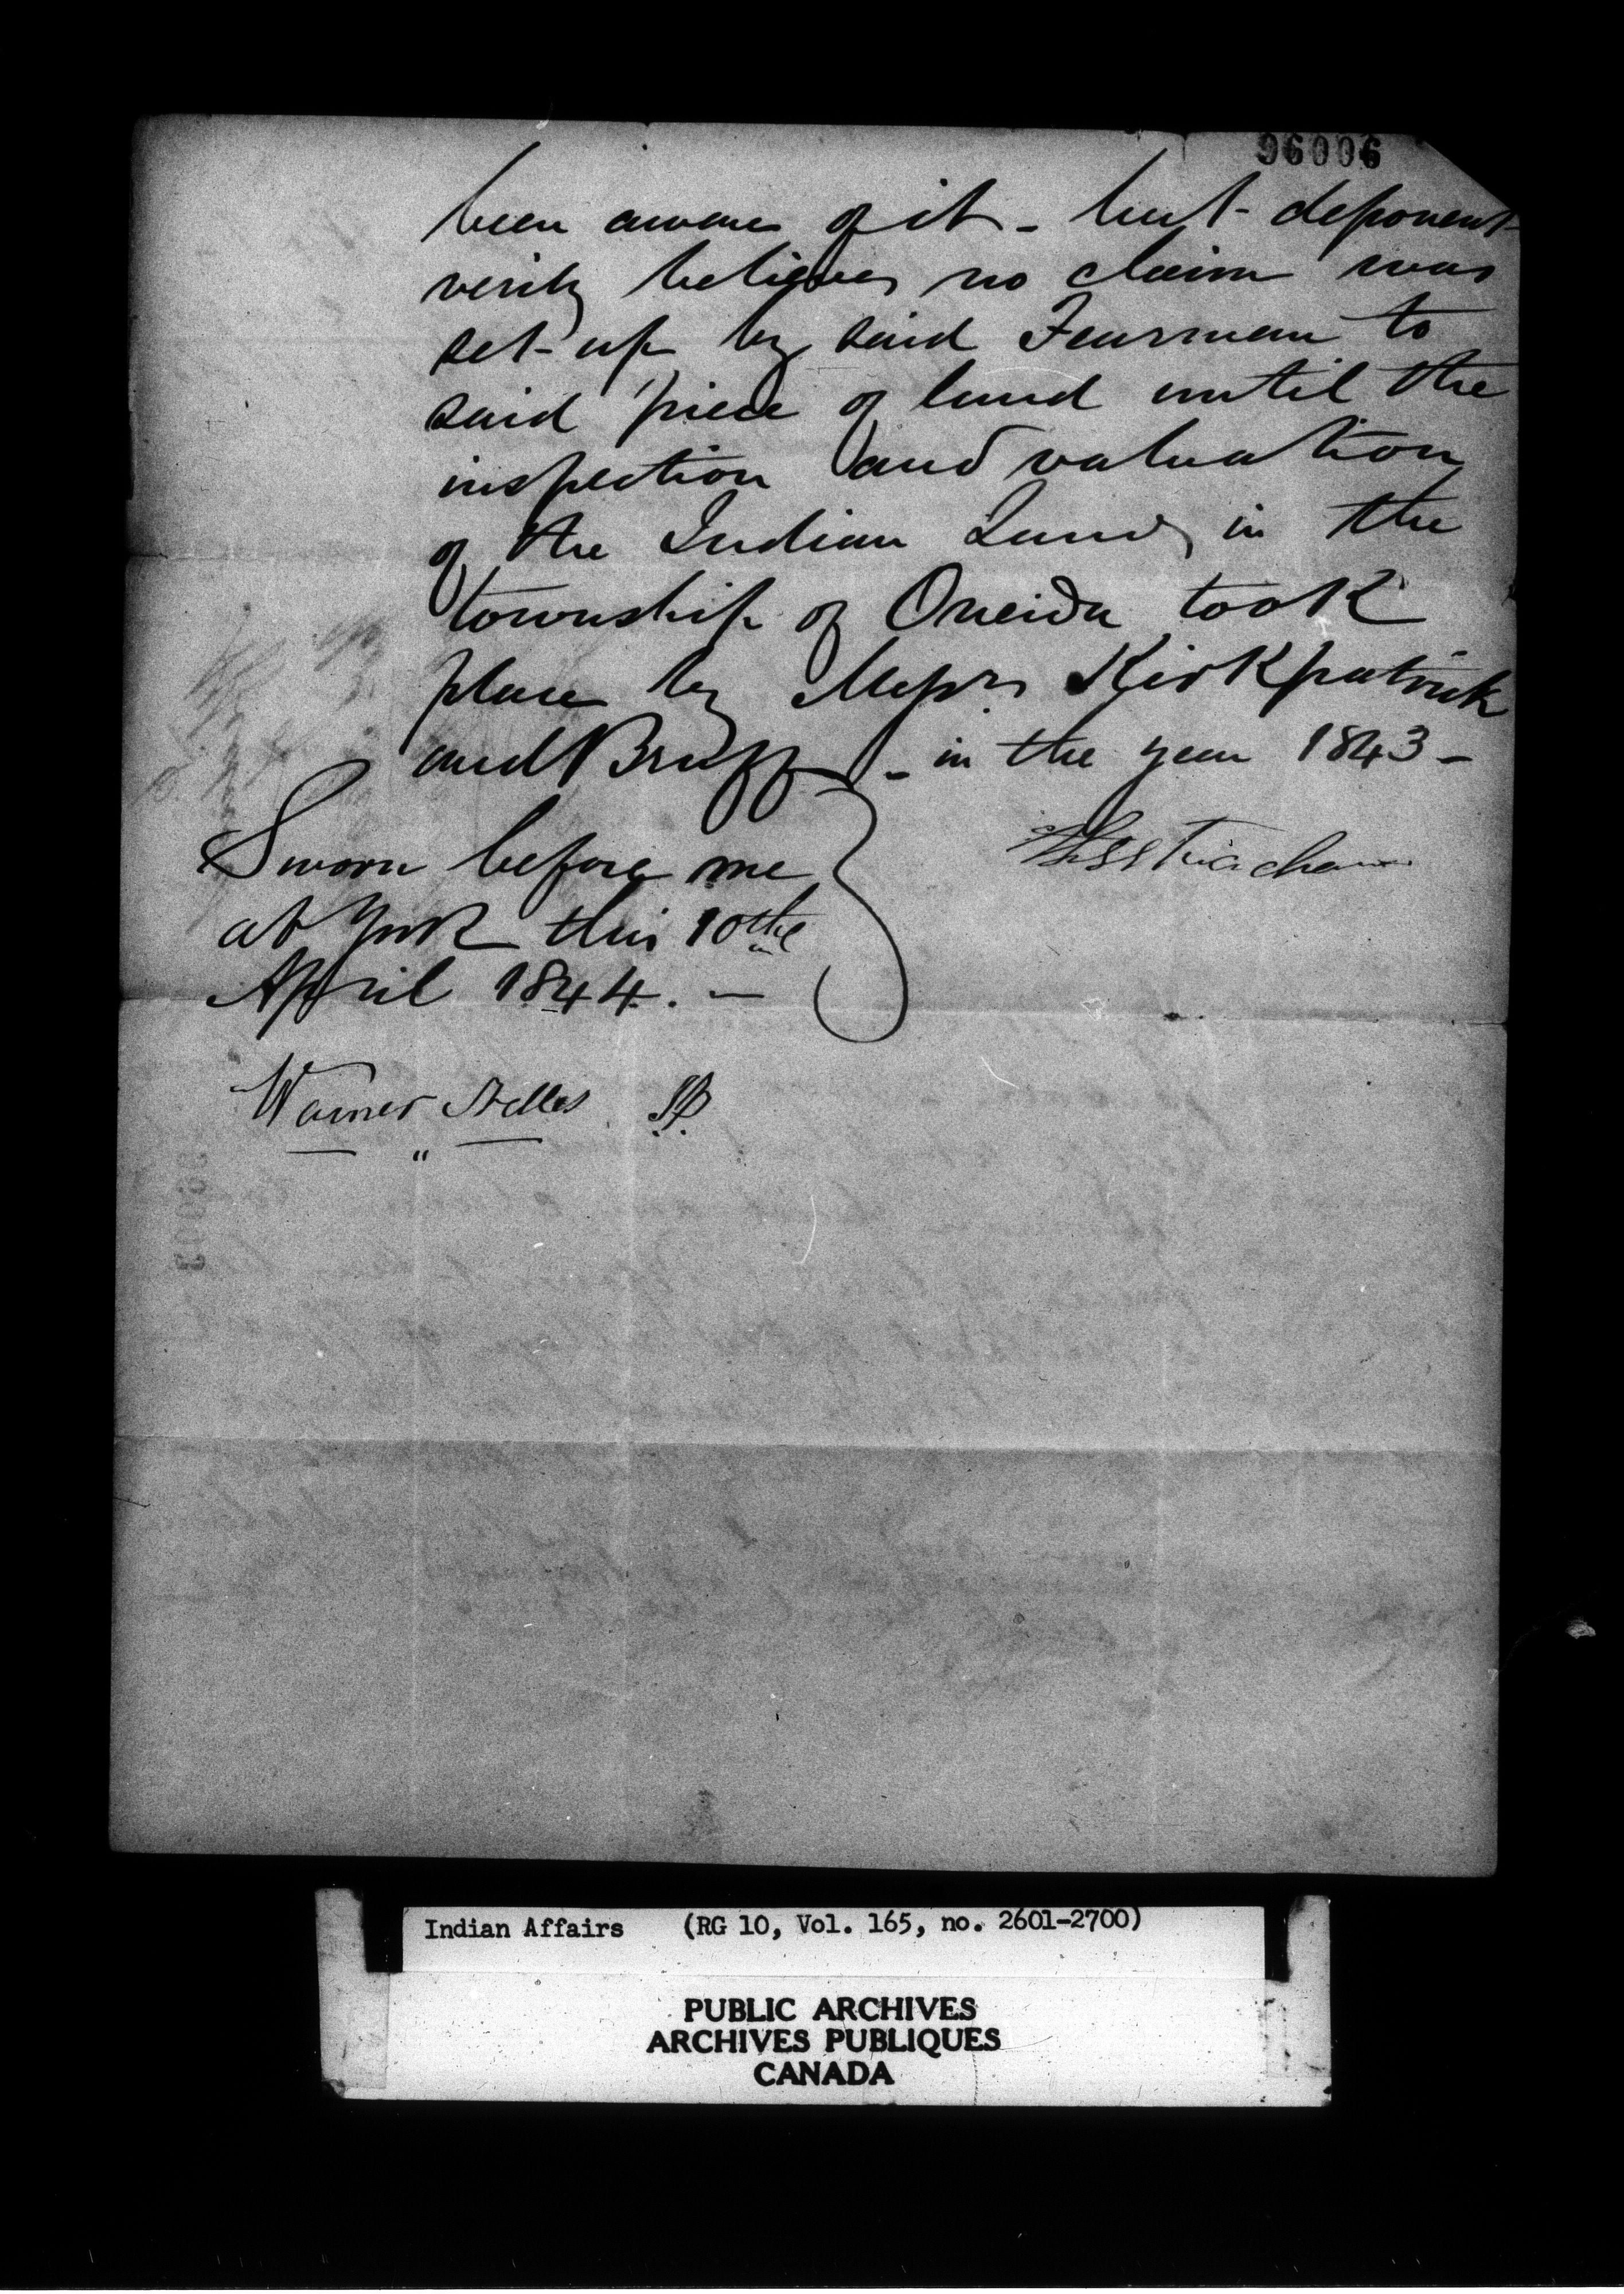 96006
been aware of it - but deponent
verily believes no claim was
set-up by said Fearman to
said piece of land until the
inspection and valuation
of the Indian Lands in the
township of Oneida took
place by Messrs Kirkpatrick
and Brüff - in the year 1843 -
Sworn before me
at York this 10th
April 1844. -
Warner Nelles JP
Indian Affairs (RG 10, Vol. 165, no. 2601-2700)
PUBLIC ARCHIVES
ARCHIVES PUBLIQUES
CANADA